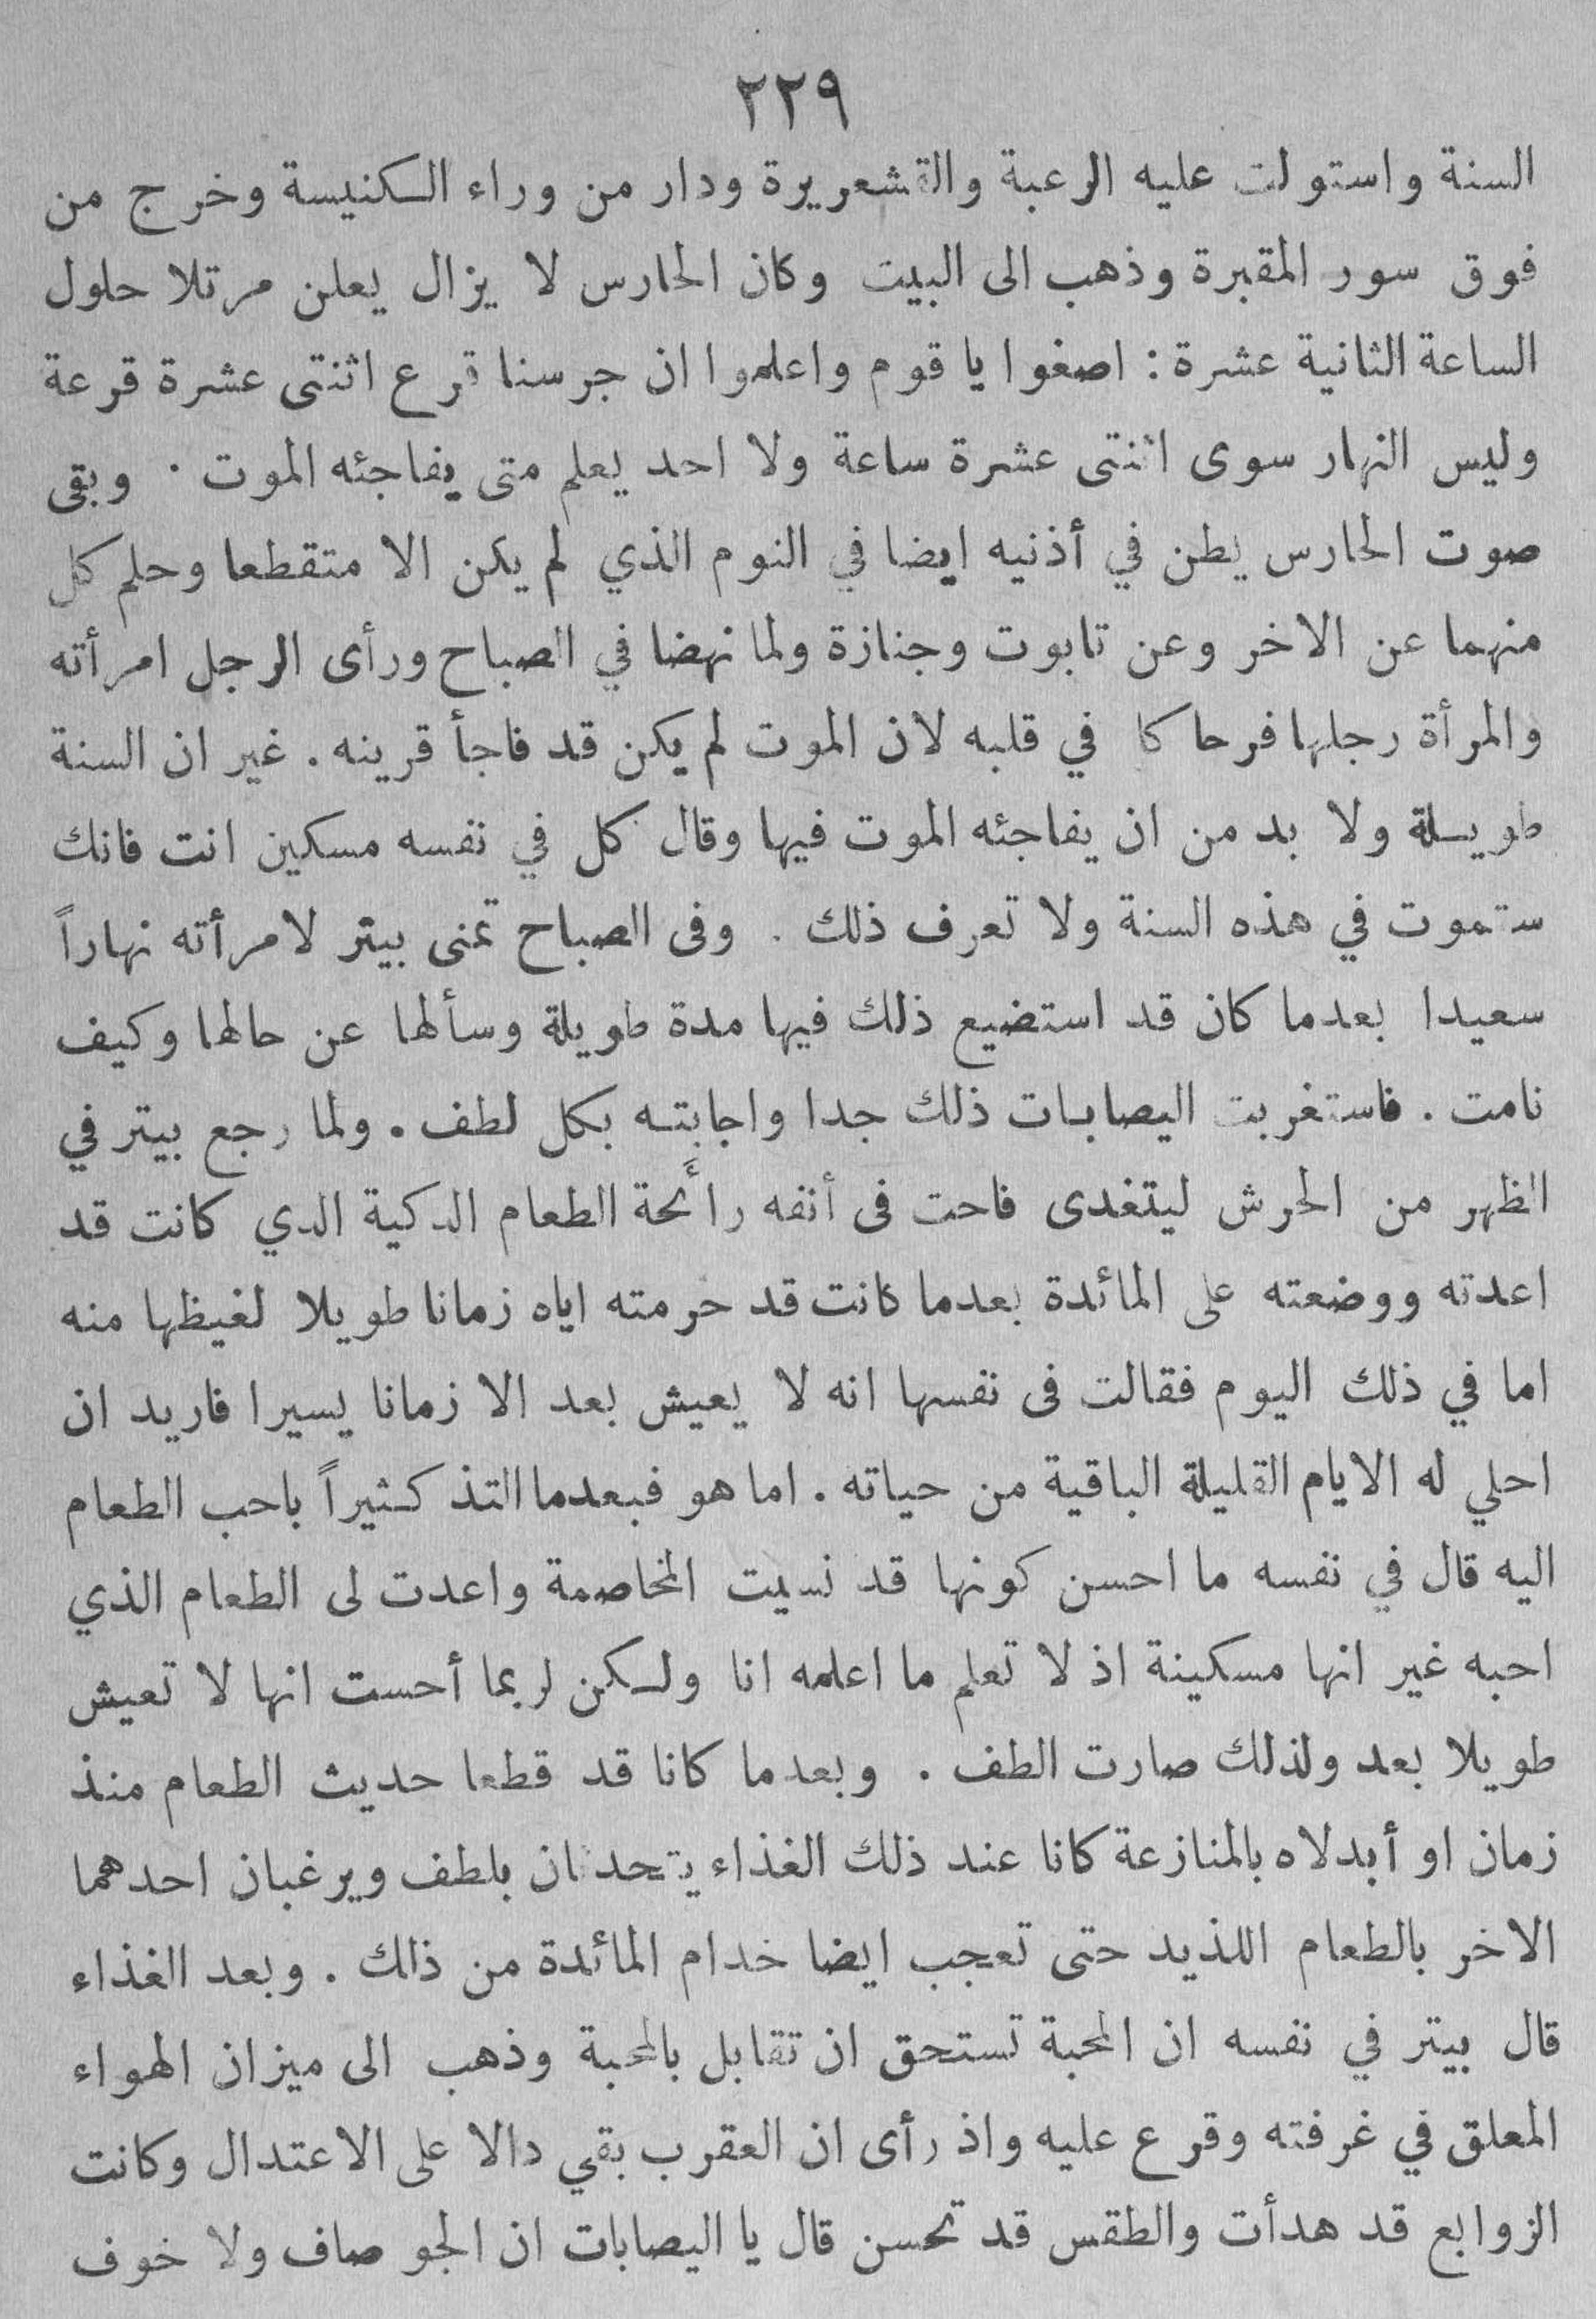 ٢٢٩
السنة واستولت عليه الرعبة والقشعريرة ودار من وراء الكنيسة وخرج من
فوق سور المقبرة وذهب الى البيت وكان الحارس لا يزال يعلن مرتلا حلول
الساعة الثانية عشرة : اصغوا يا قوم واعلموا ان جرسنا قرع اثنتى عشرة قرعة
وليس النهار سوى اثنتى عشرة ساعة ولا احد يعلم متى يفاجئه الموت . وبقى
صوت الحارس يطن في أذنيه ايضا في النوم الذي لم يكن الا متقطعا وحلم كل
منهما عن الاخر وعن تابوت وجنازة ولما نهضا في الصباح ورأى الرجل امرأته
والمرأة رجلها فرحا كا في قلبه لان الموت لم يكن قد فاجأ قرينه . غير ان السنة
طويلة ولا بد من ان يفاجئه الموت فيها وقال كل في نفسه مسكين انت فانك
ستموت في هذه السنة ولا تعرف ذلك . وفى الصباح تمنى بيتر لامرأته نهاراً
سعيدا بعدما كان قد استضيع ذلك فيها مدة طويلة وسألها عن حالها وكيف
نامت . فاستغربت اليصابات ذلك جدا واجابته بكل لطف . ولما رجع بيتر في
الظهر من الحرش ليتغدى فاحت فى أنفه رائحة الطعام الدكية الدي كانت قد
اعدته ووضعته على المائدة بعدما كانت قد حرمته اياه زمانا طويلا لغيظها منه
اما في ذلك اليوم فقالت فى نفسها انه لا يعيش بعد الا زمانا يسيرا فاريد ان
احلي له الايام القليلة الباقية من حياته . اما هو فبعدما التذ كثيراً باحب الطعام
اليه قال في نفسه ما احسن كونها قد نسيت المخاصمة واعدت لى الطعام الذي
احبه غير انها مسكينة اذ لا تعلم ما اعلمه انا ولكن لربما أحست انها لا تعيش
طويلا بعد ولذلك صارت الطف . وبعدما كانا قد قطعا حديث الطعام منذ
زمان او أبدلاه بالمنازعة كانا عند ذلك الغذاء يتحدثان بلطف ويرغبان احدهما
الاخر بالطعام اللذيد حتى تعجب ايضا خدام المائدة من ذلك . وبعد الغذاء
قال بيتر في نفسه ان المحبة تستحق ان تقابل بالمحبة وذهب الى ميزان الهواء
المعلق في غرفته وقرع عليه واذ رأى ان العقرب بقي دالا على الاعتدال وكانت
الزوابع قد هدأت والطقس قد تحسن قال يا اليصابات ان الجو صاف ولا خوف